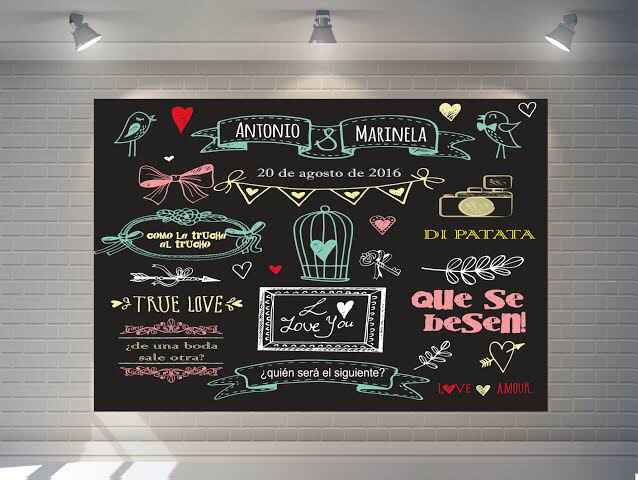 Antonio & Marinela
20 de agosto de 2016
COMO LA TRUCHA
AL TRUCHO
DI PATATA
TRUE LOVE
QUE SE
BESEN!
I
Love You
¿de una boda
sale otra?
¿quién será el siguiente?
LOVE AMOUR